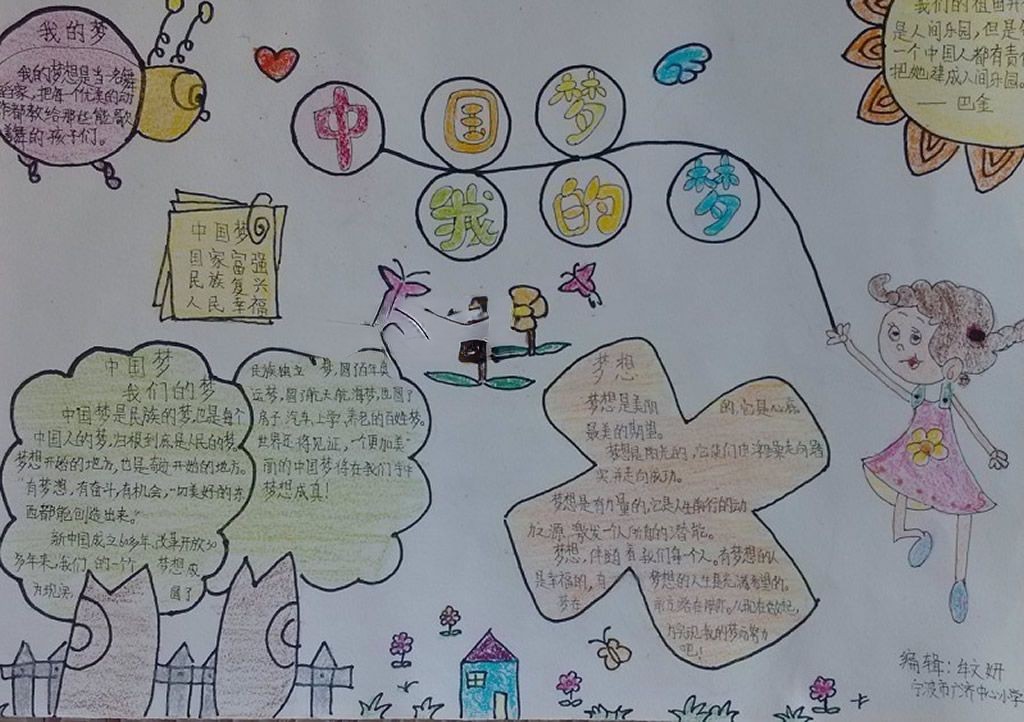 我的梦
我的梦想是当一名舞
蹈家,把每个优美的动
作都教给那些能歌
善舞的孩子们。
中国梦
我的梦
我们的祖国并
是人间乐园,但是
一个中国人都有责
把她建成人间乐园。
——巴金
中国梦
国家富强
民族复兴
人民幸福
中国梦
我们的梦
中国梦是民族的梦,也是每个
中国人的梦,归根到底是人民的梦。
梦想开始的地方,也是奇迹开始的地方。
“有梦想,有奋斗,有机会,一切美好的东
西都能创造出来。”
新中国成立60多年,改革开放30
多年来,我们的一个 梦想成
为现实, 圆了
民族独立 梦,圆百年奥
运梦,圆了航天航海梦,也圆了
房子、汽车、上学、养老的百姓梦。
世界还将见证,一个更加美
丽的中国梦将在我们手中
梦想成真!
梦想
梦想是美丽 的,它是心底
最美的期望。
梦想是阳光的,它使们由浮躁走向踏
实,并走向成功。
梦想是有力量的,它是人生前行的动
力之源,激发一个人所有的潜能。
梦想,伴随着我们每一个人。有梦想的人
是幸福的,有 梦想的人生是充满希望的。
梦在 路在脚下。从现在做起,
为实现我的梦而努力
吧!
编辑: 妍
宁波市广济中心小学